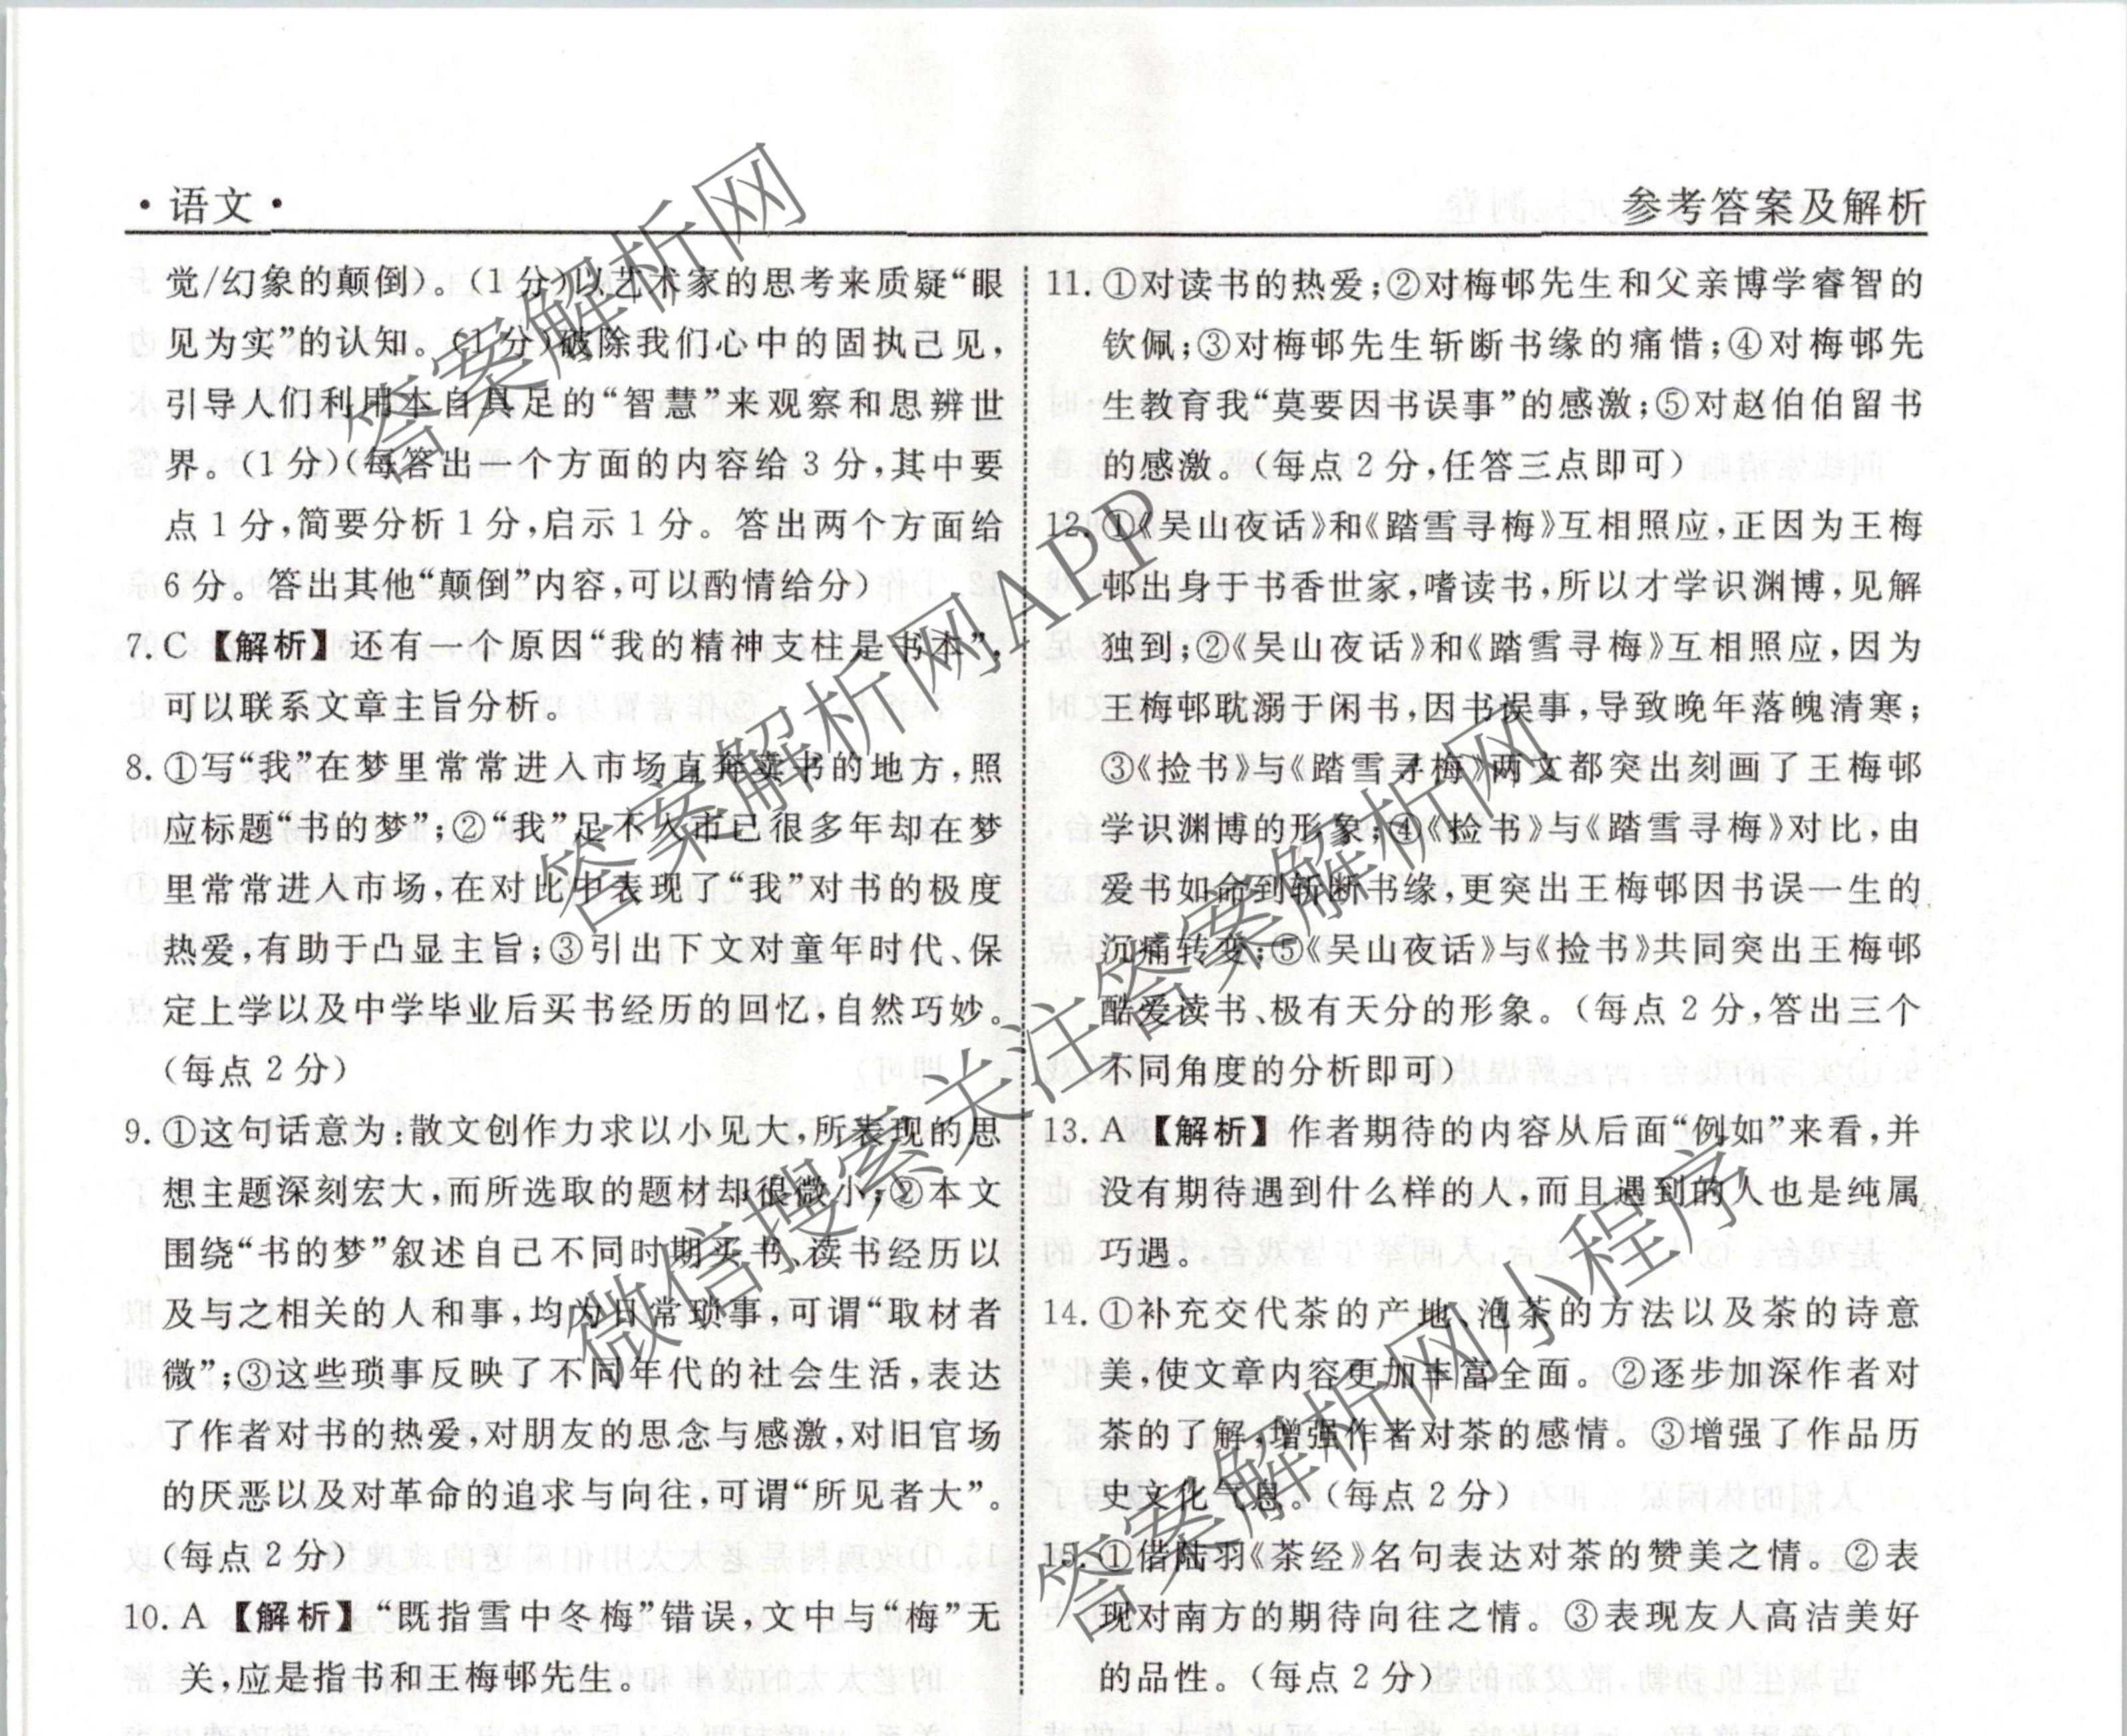 ·语文·
参考答案及解析
觉/幻象的颠倒)。(1分)以艺术家的思考来质疑“眼
见为实”的认知。(1分)破除我们心中的固执己见,
引导人们利用本自具足的“智慧”来观察和思辨世
界。(1分)(每答出一个方面的内容给3分,其中要
点1分,简要分析1分,启示1分。答出两个方面给
6分。答出其他“颠倒”内容,可以酌情给分)
7.C【解析】还有一个原因“我的精神支柱是书本”,
可以联系文章主旨分析。
8.①写“我”在梦里常常进入市场直奔卖书的地方,照
应标题“书的梦”;②“我”足不入市已很多年却在梦
里常常进入市场,在对比中表现了“我”对书的极度
热爱,有助于凸显主旨;③引出下文对童年时代、保
定上学以及中学毕业后买书经历的回忆,自然巧妙。
(每点2分)
9.①这句话意为:散文创作力求以小见大,所表现的思
想主题深刻宏大,而所选取的题材却很微小;②本文
围绕“书的梦”叙述自己不同时期买书、读书经历以
及与之相关的人和事,均为日常琐事,可谓“取材者
微”;③这些琐事反映了不同年代的社会生活,表达
了作者对书的热爱,对朋友的思念与感激,对旧官场
的厌恶以及对革命的追求与向往,可谓“所见者大”。
(每点2分)
10.A【解析】“既指雪中冬梅”错误,文中与“梅”无
关,应是指书和王梅邨先生。
11.①对读书的热爱;②对梅邨先生和父亲博学睿智的
钦佩;③对梅邨先生斩断书缘的痛惜;④对梅邨先
生教育我“莫要因书误事”的感激;⑤对赵伯伯留书
的感激。(每点2分,任答三点即可)
12.①《吴山夜话》和《踏雪寻梅》互相照应,正因为王梅
邨出身于书香世家,嗜读书,所以才学识渊博,见解
独到;②《吴山夜话》和《踏雪寻梅》互相照应,因为
王梅邨耽溺于闲书,因书误事,导致晚年落魄清寒;
③《捡书》与《踏雪寻梅》两文都突出刻画了王梅邨
学识渊博的形象;④《捡书》与《踏雪寻梅》对比,由
爱书如命到斩断书缘,更突出王梅邨因书误一生的
沉痛转变;⑤《吴山夜话》与《捡书》共同突出王梅邨
酷爱读书、极有天分的形象。(每点2分,答出三个
不同角度的分析即可)
13.A【解析】作者期待的内容从后面“例如”来看,并
没有期待遇到什么样的人,而且遇到的人也是纯属
巧遇。
14.①补充交代茶的产地、泡茶的方法以及茶的诗意
美,使文章内容更加丰富全面。②逐步加深作者对
茶的了解,增强作者对茶的感情。③增强了作品历
史文化气息。(每点2分)
15.①借陆羽《茶经》名句表达对茶的赞美之情。②表
现对南方的期待向往之情。③表现友人高洁美好
的品性。(每点2分)
答案解析网
答案解析网APP
微信搜索关注答案解析网
答案解析网小程序